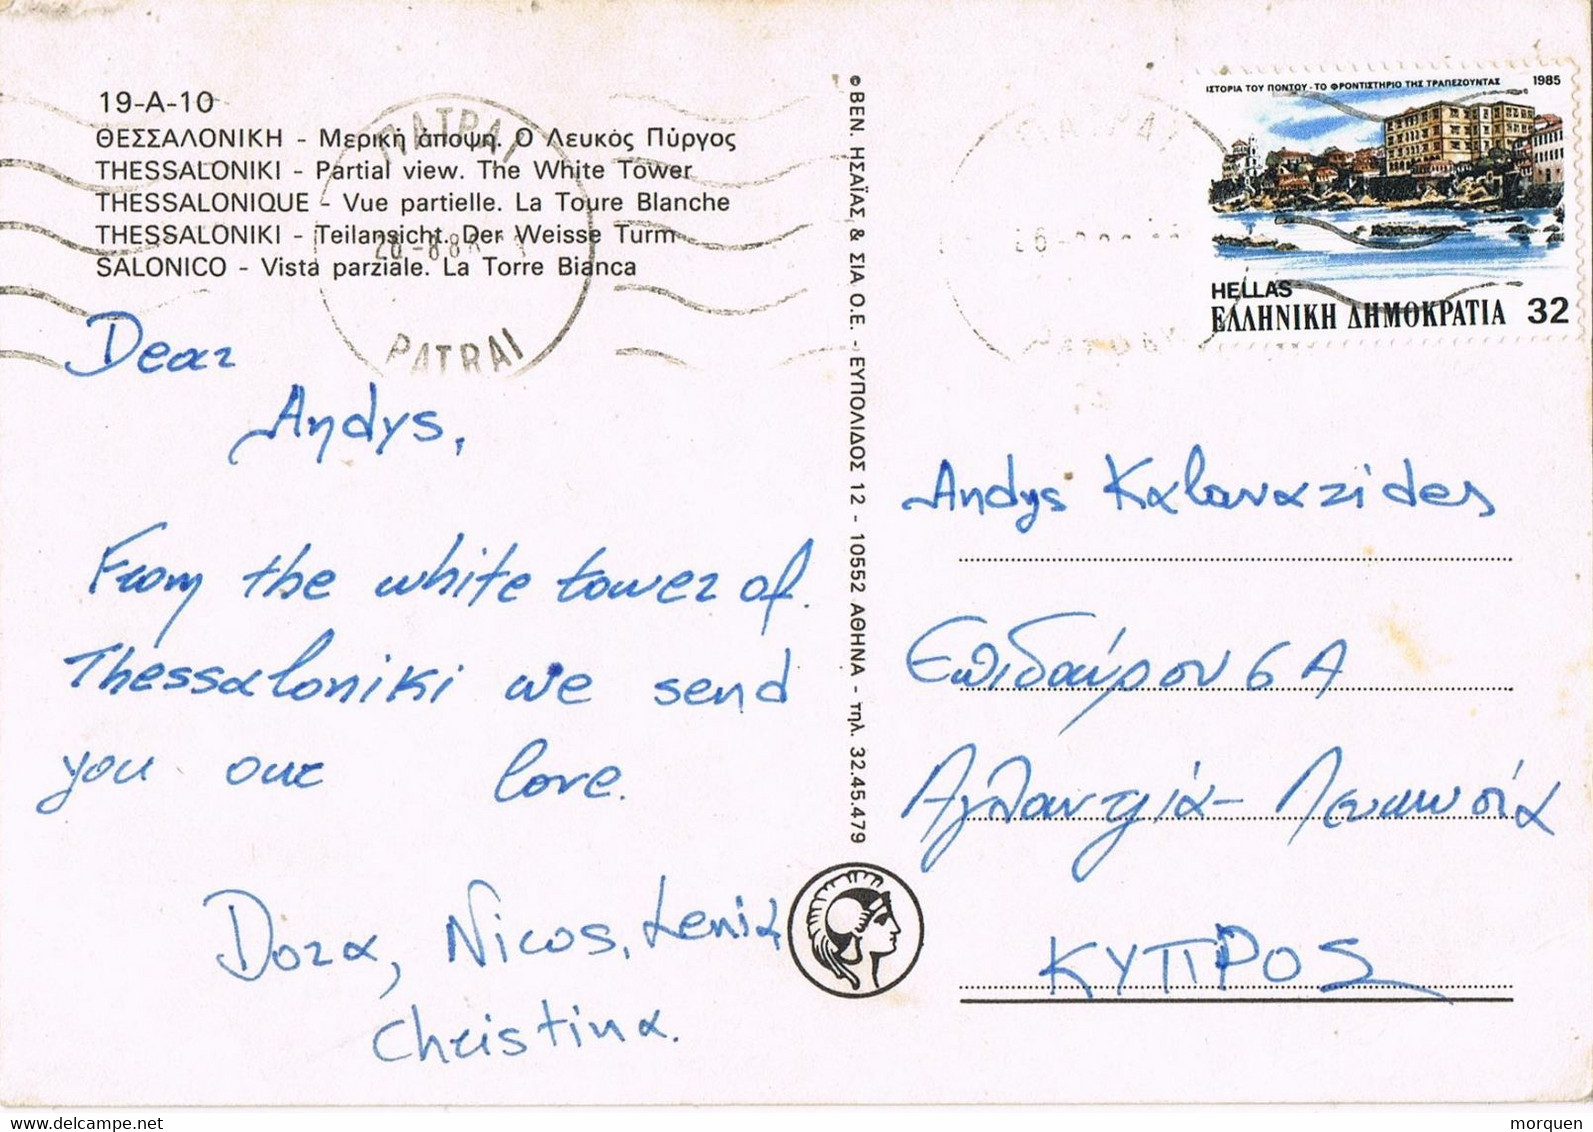 19-A-10
ΘΕΣΣΑΛΟΝΙΚΗ - Μερική άποψη. Ο Λευκός Πύργος
THESSALONIKI - Partial view. The White Tower
THESSALONIQUE - Vue partielle. La Toure Blanche
THESSALONIKI - Teilansicht. Der Weisse Turm
SALONICO - Vista parziale. La Torre Bianca
ΠΑΤΡΑΙ
PATRAI
Dear
Andys,
From the white tower of
Thessaloniki we send
you our love.
Dora, Nicos, Lenia
Christina.
© ΒΕΝ. ΗΣΑΪΑΣ & ΣΙΑ Ο.Ε. - ΕΥΠΟΛΙΔΟΣ 12 - 10552 ΑΘΗΝΑ - τηλ. 32.45.479
ΙΣΤΟΡΙΑ ΤΟΥ ΠΟΝΤΟΥ - ΤΟ ΦΡΟΝΤΙΣΤΗΡΙΟ ΤΗΣ ΤΡΑΠΕΖΟΥΝΤΑΣ 1985
HELLAS
ΕΛΛΗΝΙΚΗ ΔΗΜΟΚΡΑΤΙΑ 32
Andys
Επιδαύρου 6 Α
Αγλαντζιά - Λευκωσία
ΚΥΠΡΟΣ
morquen